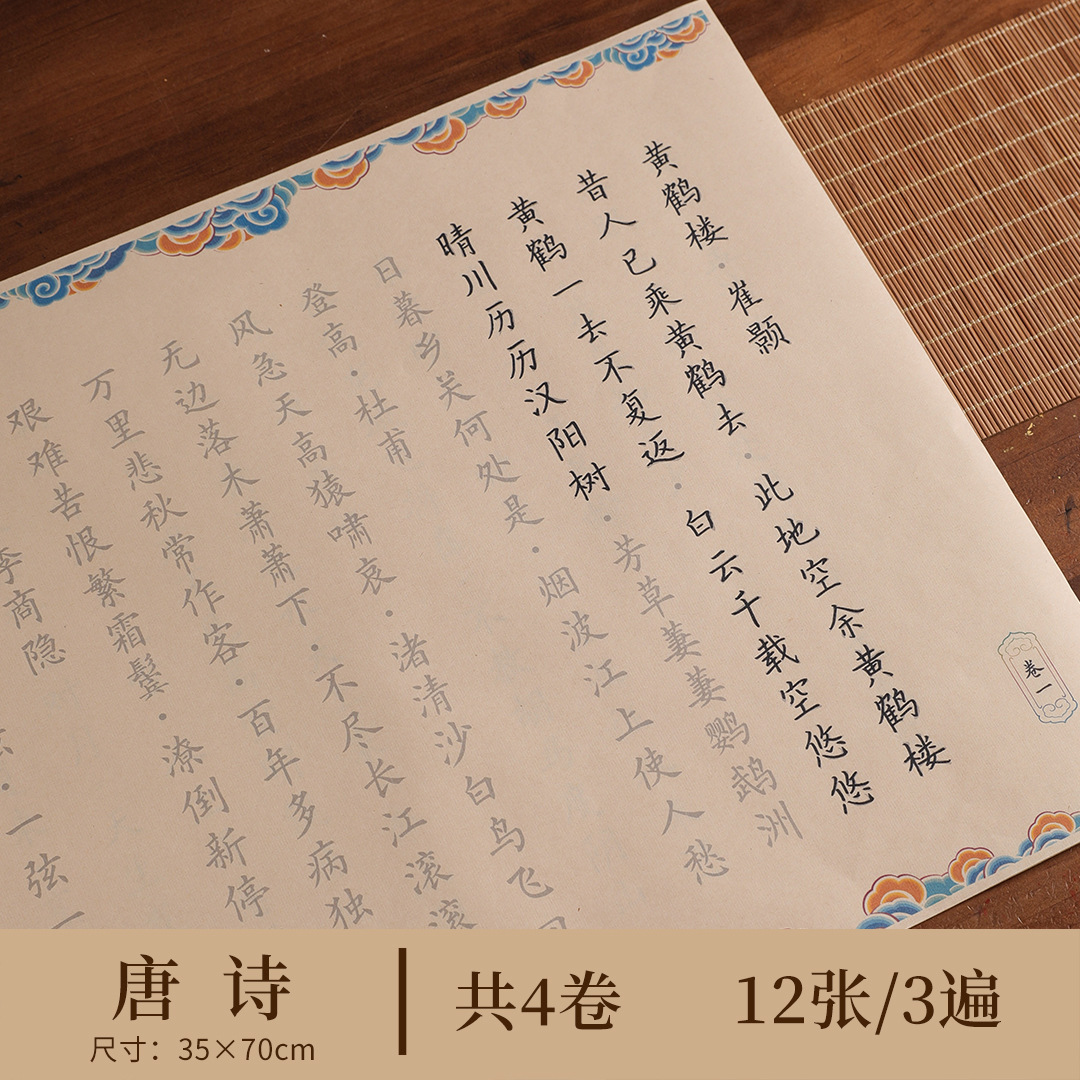 黄鹤楼·崔颢
昔人已乘黄鹤去·此地空余黄鹤楼
黄鹤一去不复返·白云千载空悠悠
晴川历历汉阳树·芳草萋萋鹦鹉洲
日暮乡关何处是·烟波江上使人愁
登高·杜甫
风急天高猿啸哀·渚清沙白鸟飞
无边落木萧萧下·不尽长江滚滚
万里悲秋常作客·百年多病独
艰难苦恨繁霜鬓·潦倒新停
李商隐
·一弦一
卷一
唐诗
尺寸：35×70cm
共4卷
12张/3遍